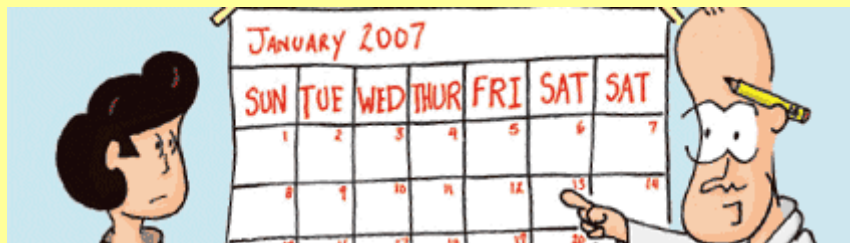 JANUARY 2007
SUN TUE WED THUR FRI SAT SAT
1 2 3 4 5 6 7
8 9 10 11 12 13 14
19 20